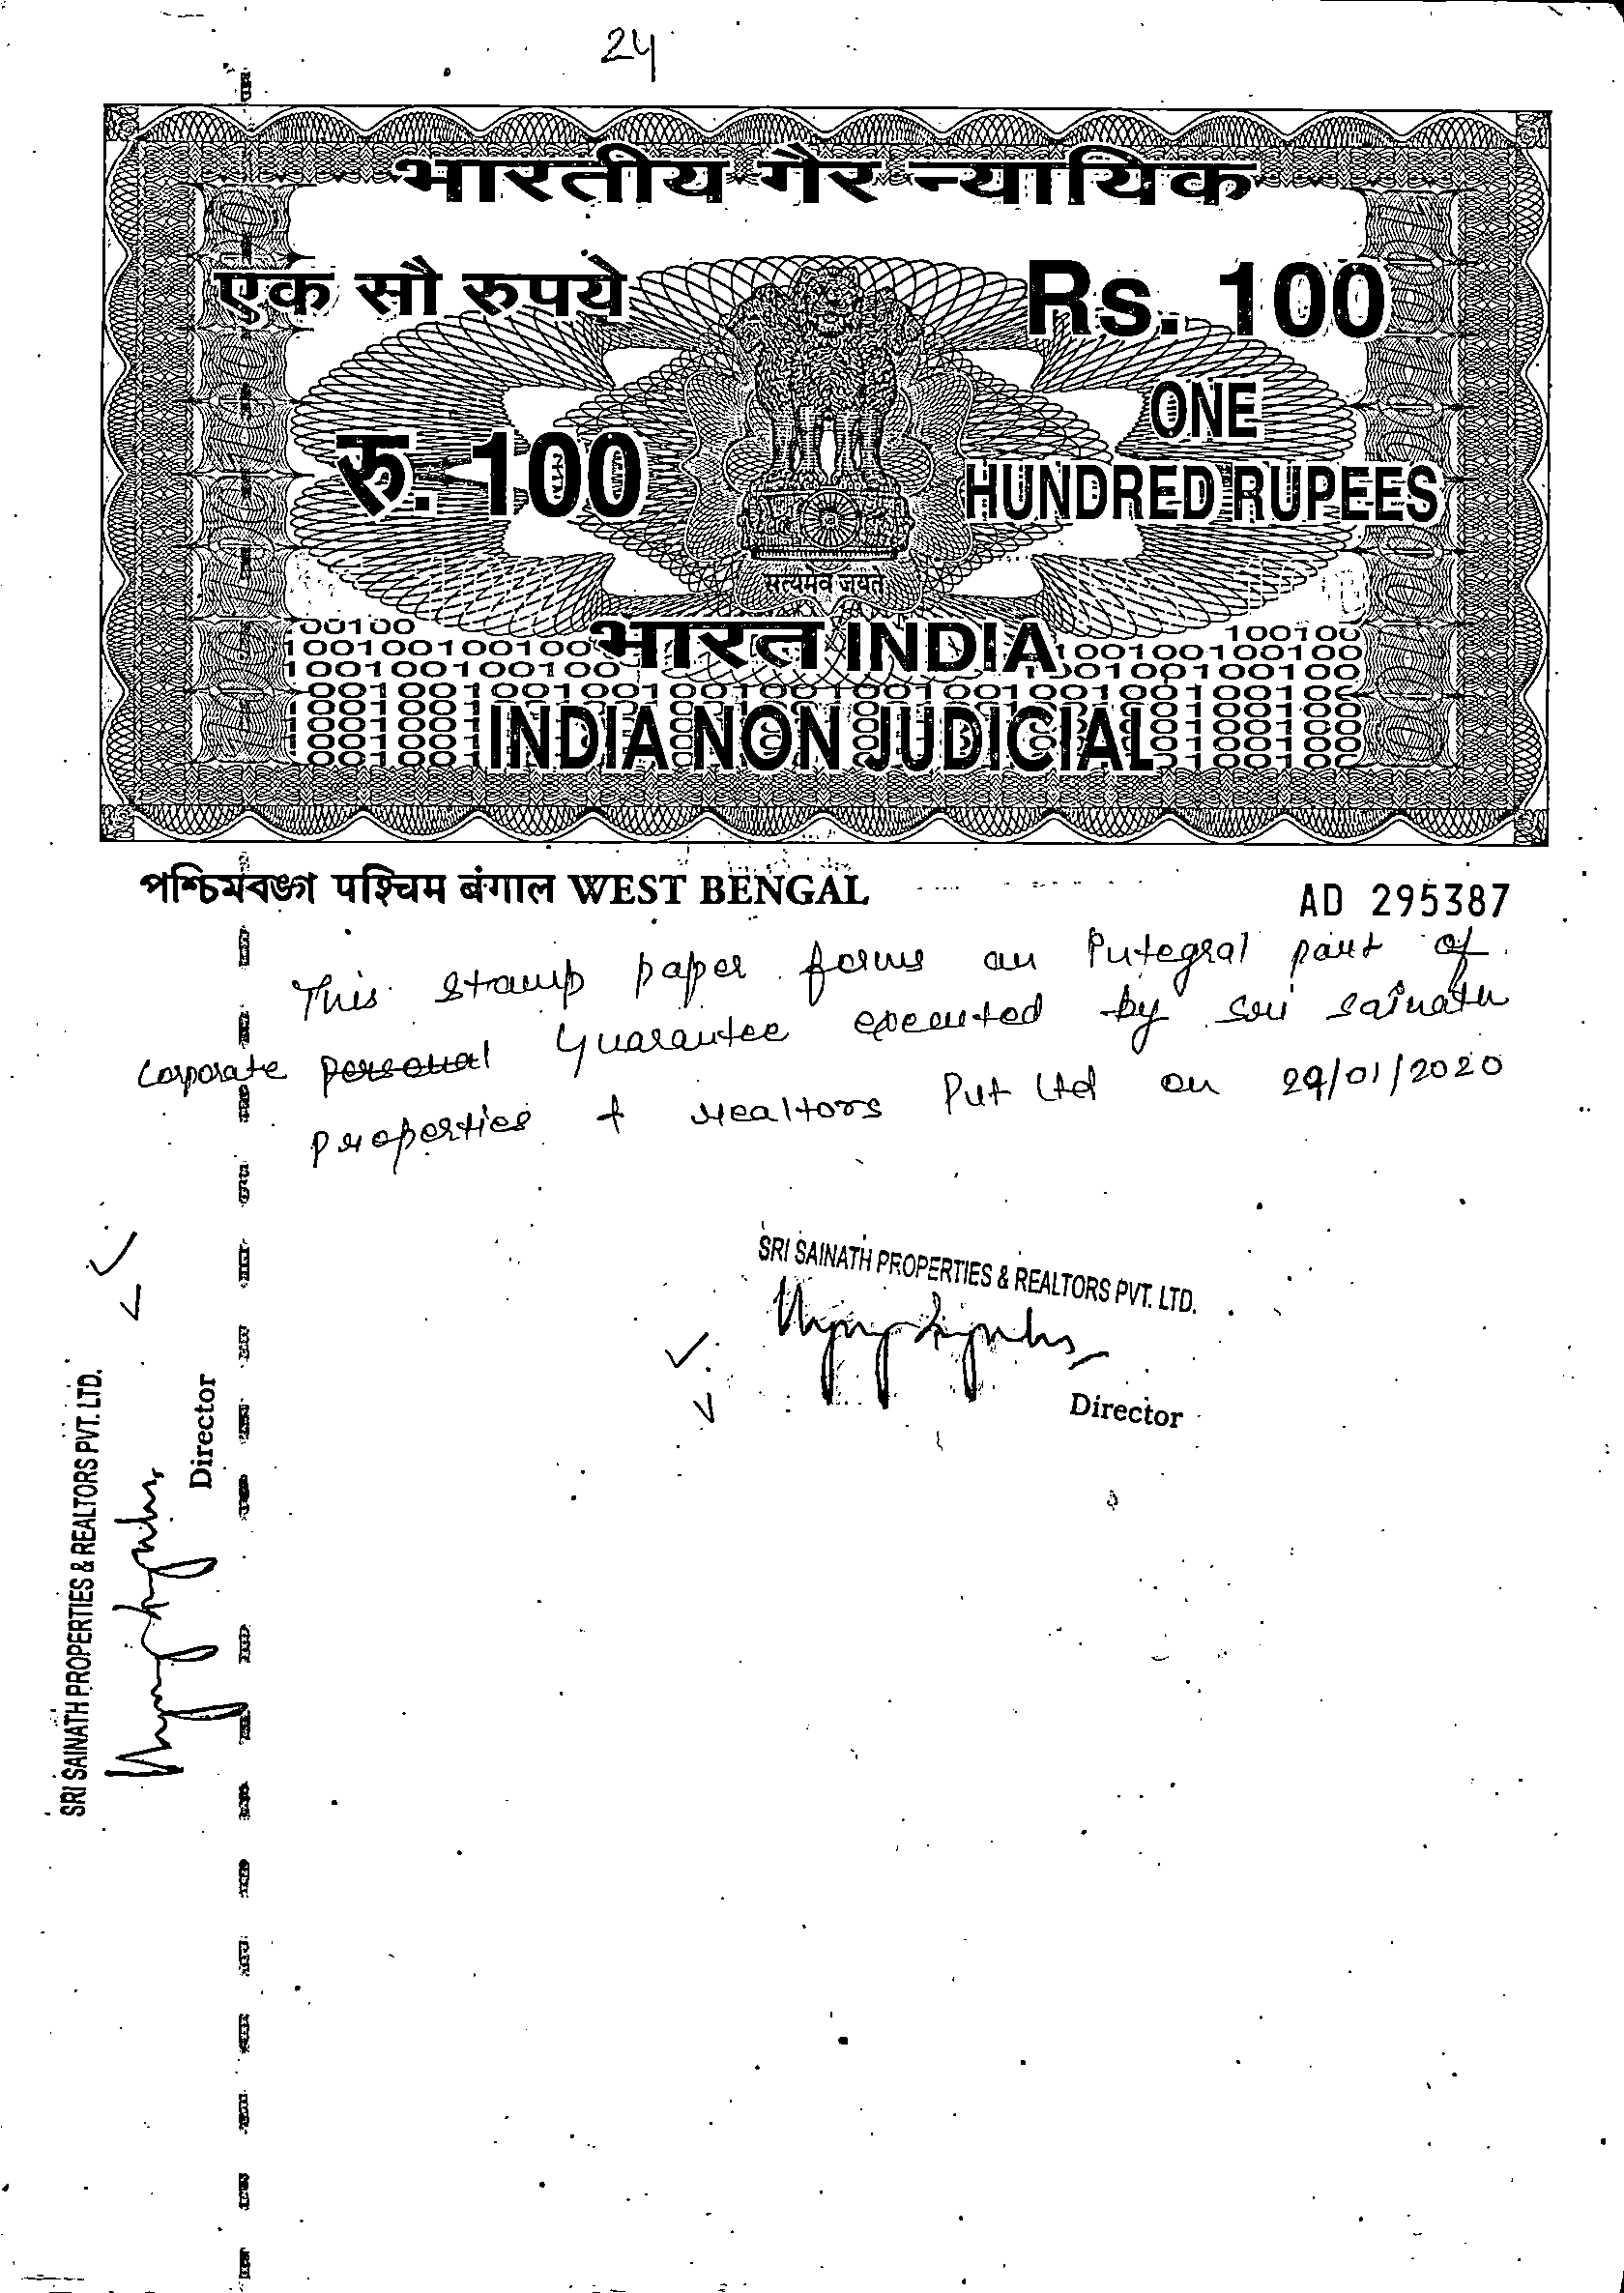 24
भारतीय गैर न्यायिक
एक सौ रुपये
Rs. 100
रु. 100
ONE
HUNDRED RUPEES
सत्यमेव जयते
भारत INDIA
INDIA NON JUDICIAL
পশ্চিমবঙ্গ पश्चिम बंगाल WEST BENGAL
AD 295387
This stamp paper forms an Integral part of
Corporate personal Guarantee executed by Sri Sainath
Properties & Realtors Pvt Ltd on 29/01/2020
SRI SAINATH PROPERTIES & REALTORS PVT. LTD.
Director
SRI SAINATH PROPERTIES & REALTORS PVT. LTD.
Director